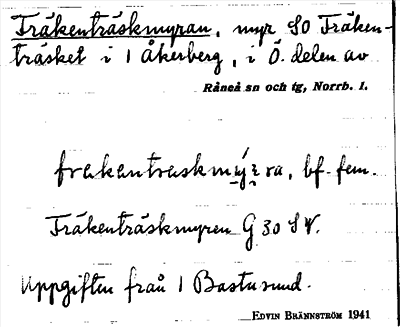 Fräkenträskmyran, myr SO Fräken-
träsket i 1 Åkerberg, i Ö. delen av
Råneå sn och tg, Norrb. l.
frakantraskmýra, bf. fem.
Fräkenträskmyren G 30 SV.
Uppgiften från 1 Bastusund.
EDVIN BRÄNNSTRÖM 1941